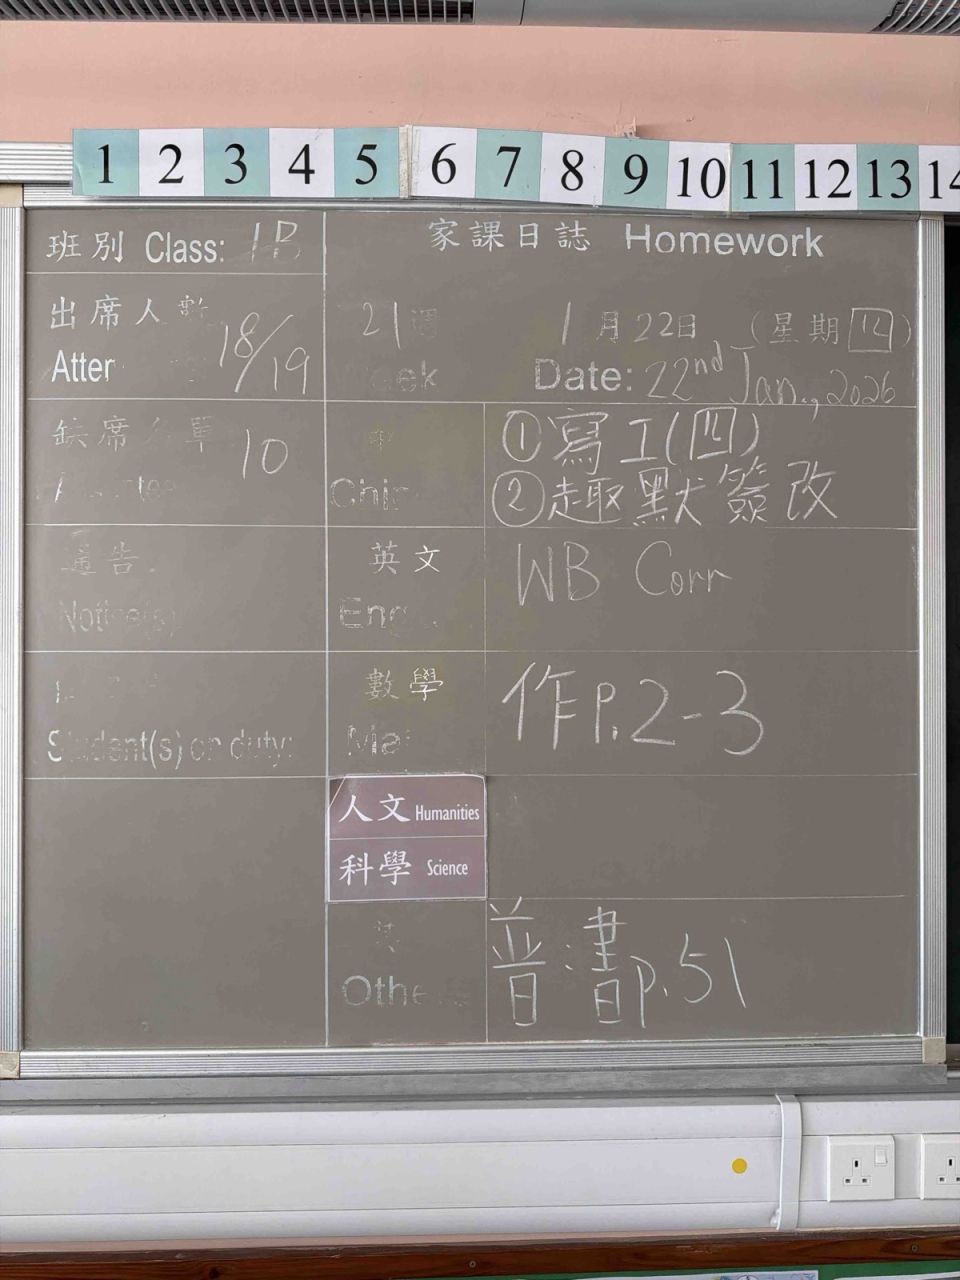 1 2 3 4 5 6 7 8 9 10 11 12 13 14
班別 Class: 1B
家課日誌 Homework
出席人數
18/19
21週
1月22日 (星期四)
Date: 22nd Jan., 2026
缺席名單
10
①寫工(四)
②趣默簽改
通告
英文
WB Corr
數學
作P.2-3
Student(s) on duty:
人文 Humanities
科學 Science
普:書p.51